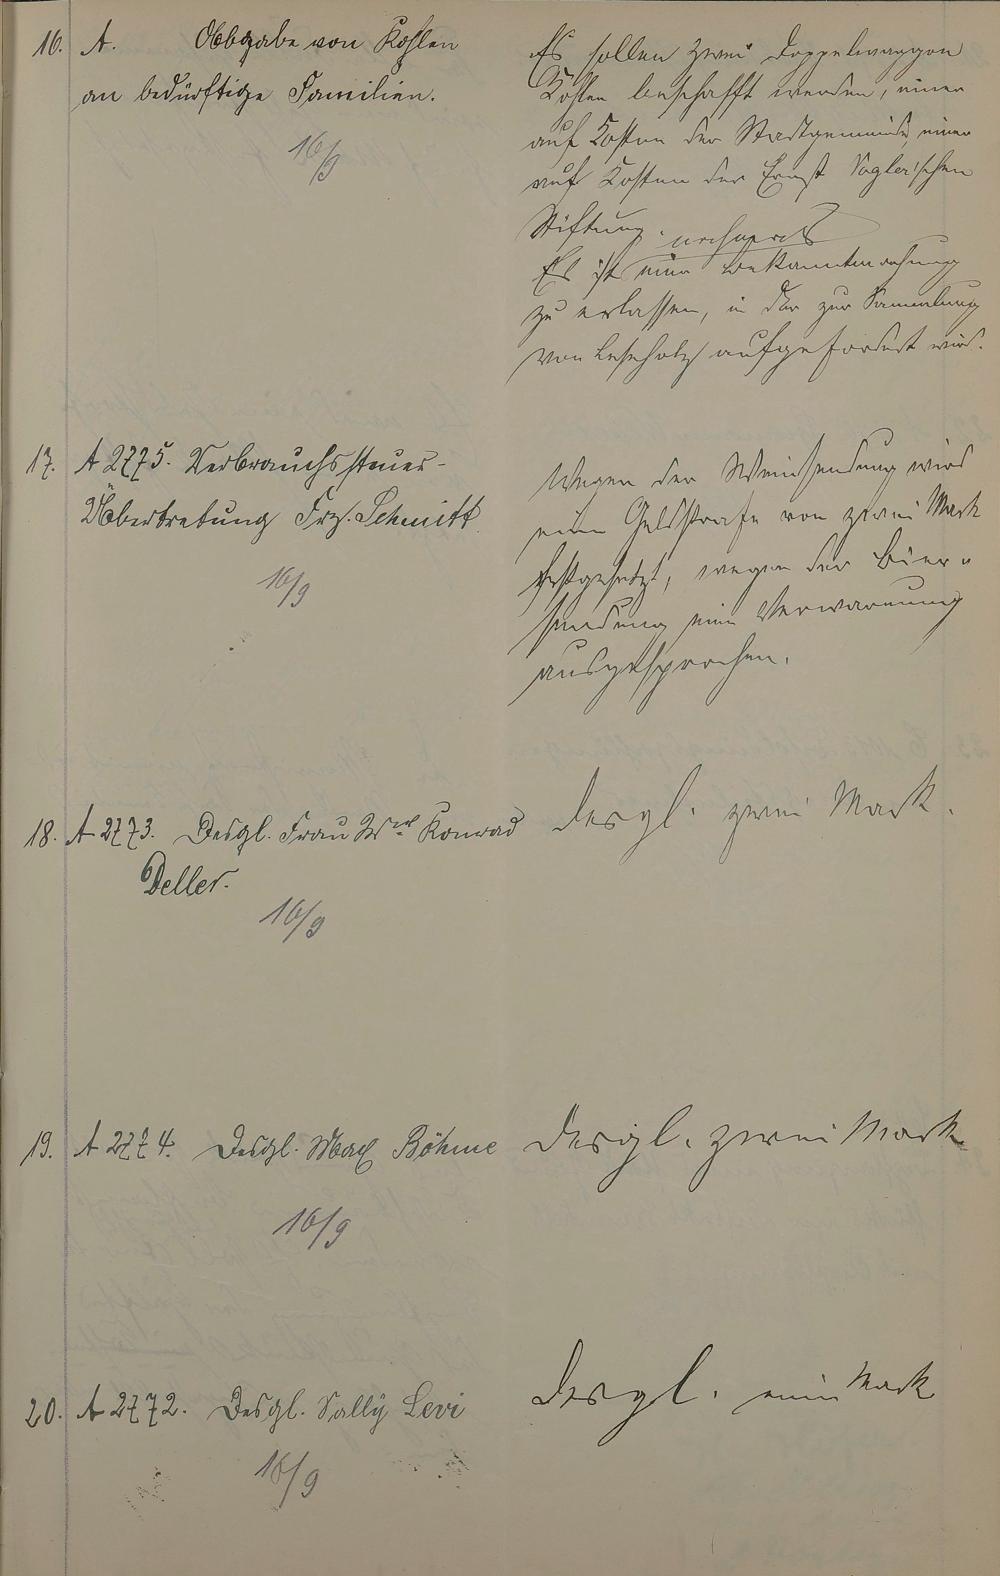 16. A. Abgabe von Kohlen
an bedürftige Familien.
16/9
Es sollen zwei Doppelwaggon
Kohlen beschafft werden, einer
auf Kosten der Stadtgemeinde, einer
auf Kosten der Ernst Vogler'schen
Stiftung.
Es ist eine Bekanntmachung
zu erlassen, in der zur Sammlung
von Leseholz aufgefordert wird.
17. A 2775. Verbrauchssteuer-
Übertretung Frz. Schmitt
16/9
Wegen der Weinsendung wird
eine Geldstrafe von zwei Mark
festgesetzt, wegen der Bier-
sendung eine Verwarnung
ausgesprochen.
18. A 2773. Desgl. Frau Wwe Konrad
Deller.
16/9
Desgl. zwei Mark.
19. A 2774. Desgl. Max Böhme
16/9
Desgl. zwei Mark
20. A 2772. Desgl. Sally Levi
16/9
Desgl. eine Mark